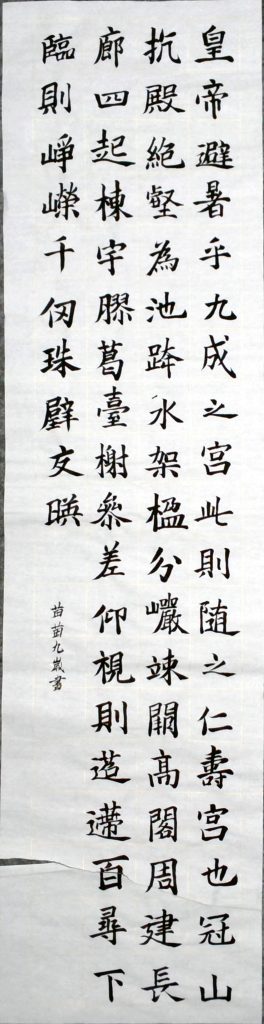 皇帝避暑乎九成之宮此則随之仁壽宮也冠山
抗殿絶壑為池跨水架楹分巗竦闕高閣周建長
廊四起棟宇膠葛臺榭叅差仰視則迢遰百尋下
臨則崢嶸千仞珠璧交暎
苗苗九歲書